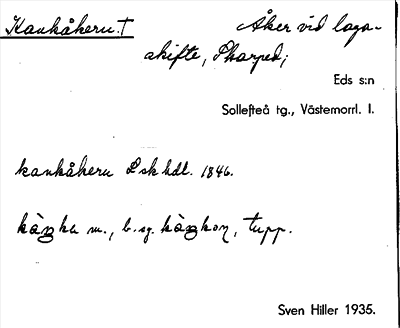 Kankåkern. † Åker vid laga-
skifte, Skarped;
Eds s:n
Sollefteå tg., Västernorrl. l.
kankåkern L sk hdl. 1846.
m., b. sg. tupp.
Sven Hiller 1935.